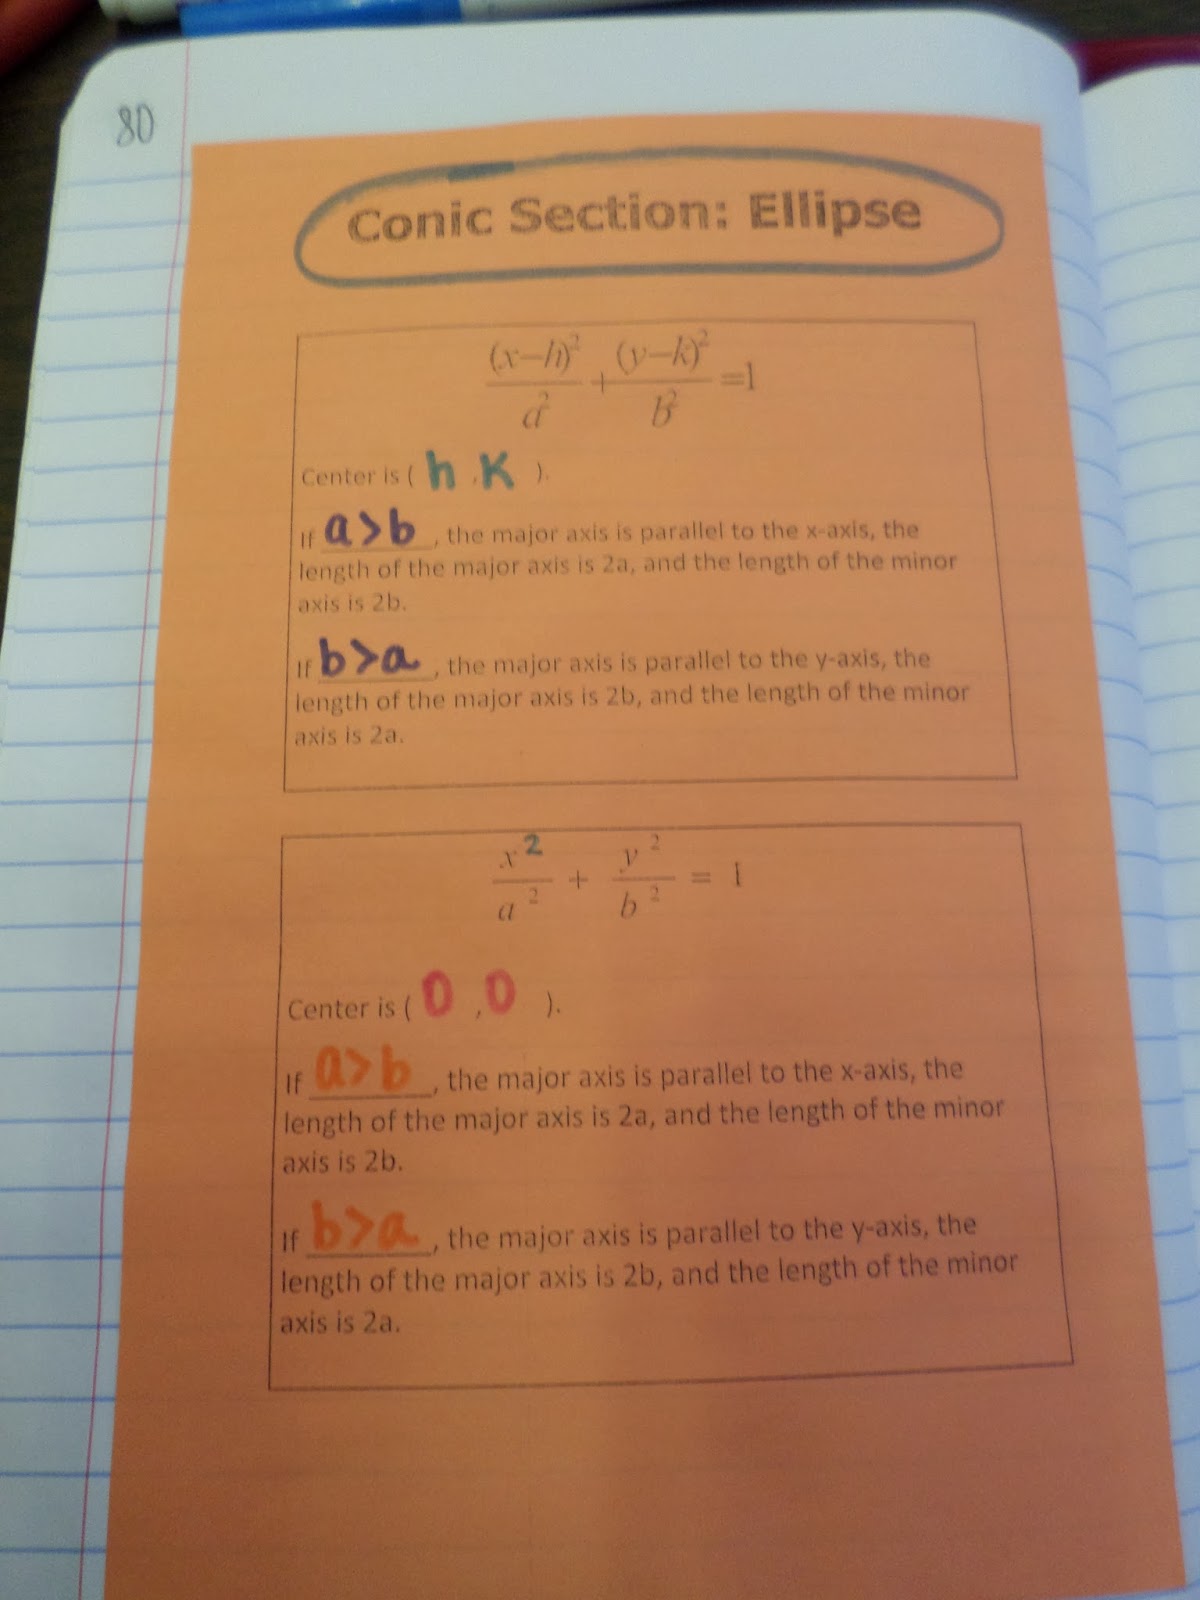 80
Conic Section: Ellipse
(x-h)²/a² + (y-k)²/b² = 1
Center is ( h , K ).
If a>b, the major axis is parallel to the x-axis, the
length of the major axis is 2a, and the length of the minor
axis is 2b.
If b>a, the major axis is parallel to the y-axis, the
length of the major axis is 2b, and the length of the minor
axis is 2a.
x²/a² + y²/b² = 1
Center is ( 0 , 0 ).
If a>b, the major axis is parallel to the x-axis, the
length of the major axis is 2a, and the length of the minor
axis is 2b.
If b>a, the major axis is parallel to the y-axis, the
length of the major axis is 2b, and the length of the minor
axis is 2a.